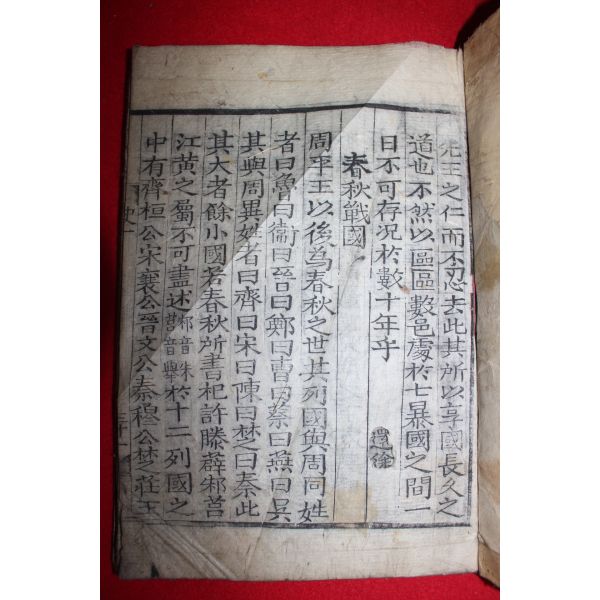 先王之仁而不忍去此其所以享國長久之
道也不然以區區數邑處於七暴國之間一
日不可存况於數十年乎
春秋戰國
周平王以後爲春秋之世其列國與周同姓
者曰魯曰衞曰晉曰鄭曰曹曰蔡曰燕曰吳
其與周異姓者曰齊曰宋曰陳曰楚曰秦此
其大者餘小國若春秋所書杞許滕薛邾莒
江黄之屬不可盡述邾音朱莒音舉於十二列國之
中有齊桓公宋襄公晉文公秦穆公楚莊王